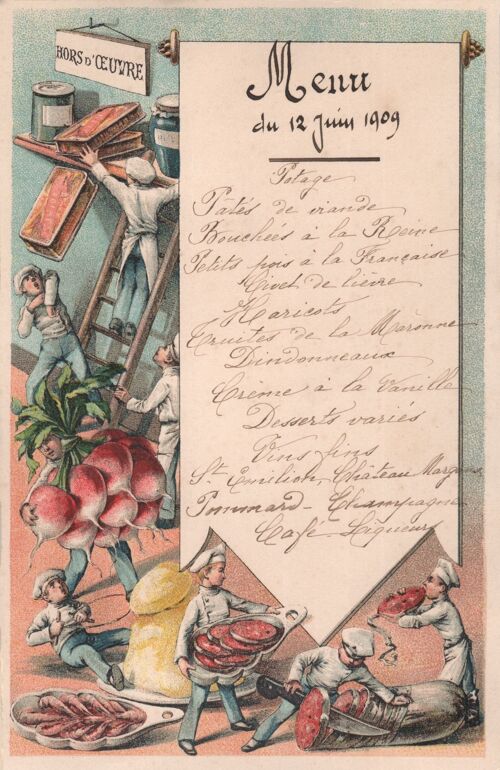 HORS D'ŒUVRE
Menu
du 12 Juin 1909
Potage
Pâtés de viande
Bouchées à la Reine
Petits pois à la Française
Civet de lièvre
Haricots
Truites de la Maronne
Dindonneaux
Crème à la Vanille
Desserts variés
Vins fins
St Emilion Château Margaux
Pommard - Champagne
Café - Liqueurs